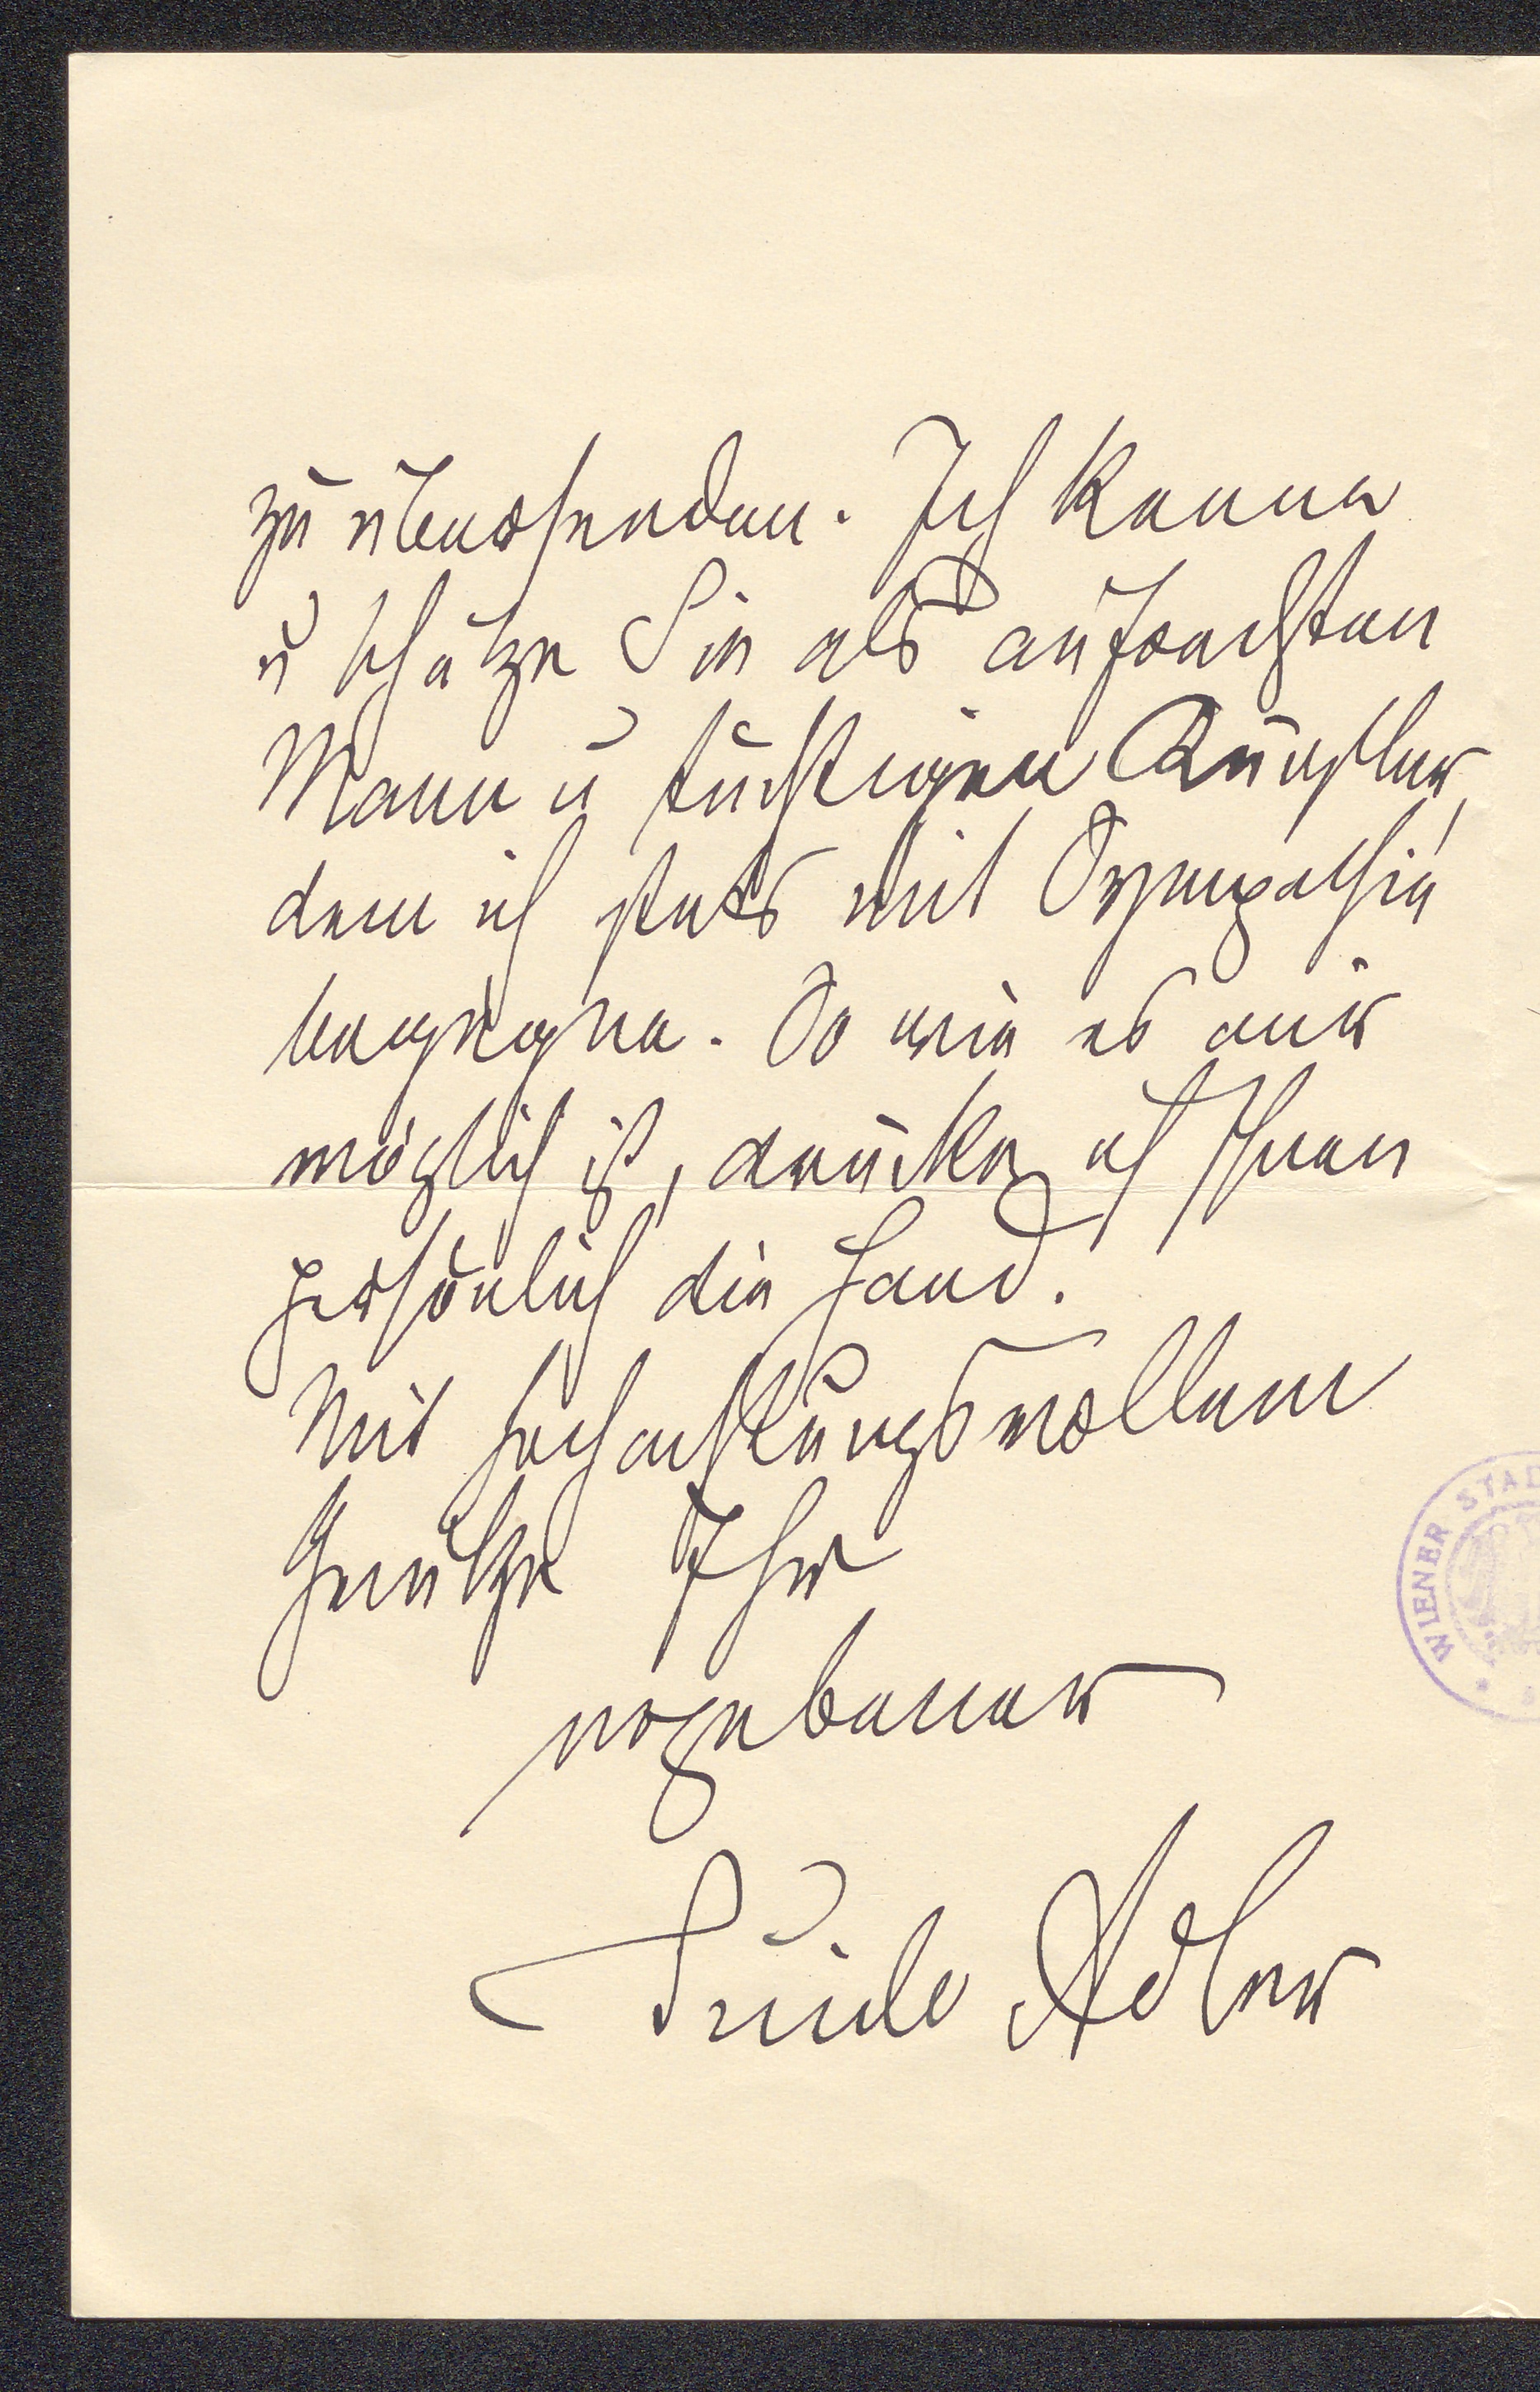 zu übersenden. Ich kenne
u schätze Sie als aufrechten
Mann u tüchtigen Künstler,
dem ich stets mit Sympathie
begegne. So wie es mir
möglich ist, drücke ich Ihnen
persönlich die Hand.
Mit hochachtungsvollem
Grüße Ihr
ergebener
Guido Adler
WIENER STAD